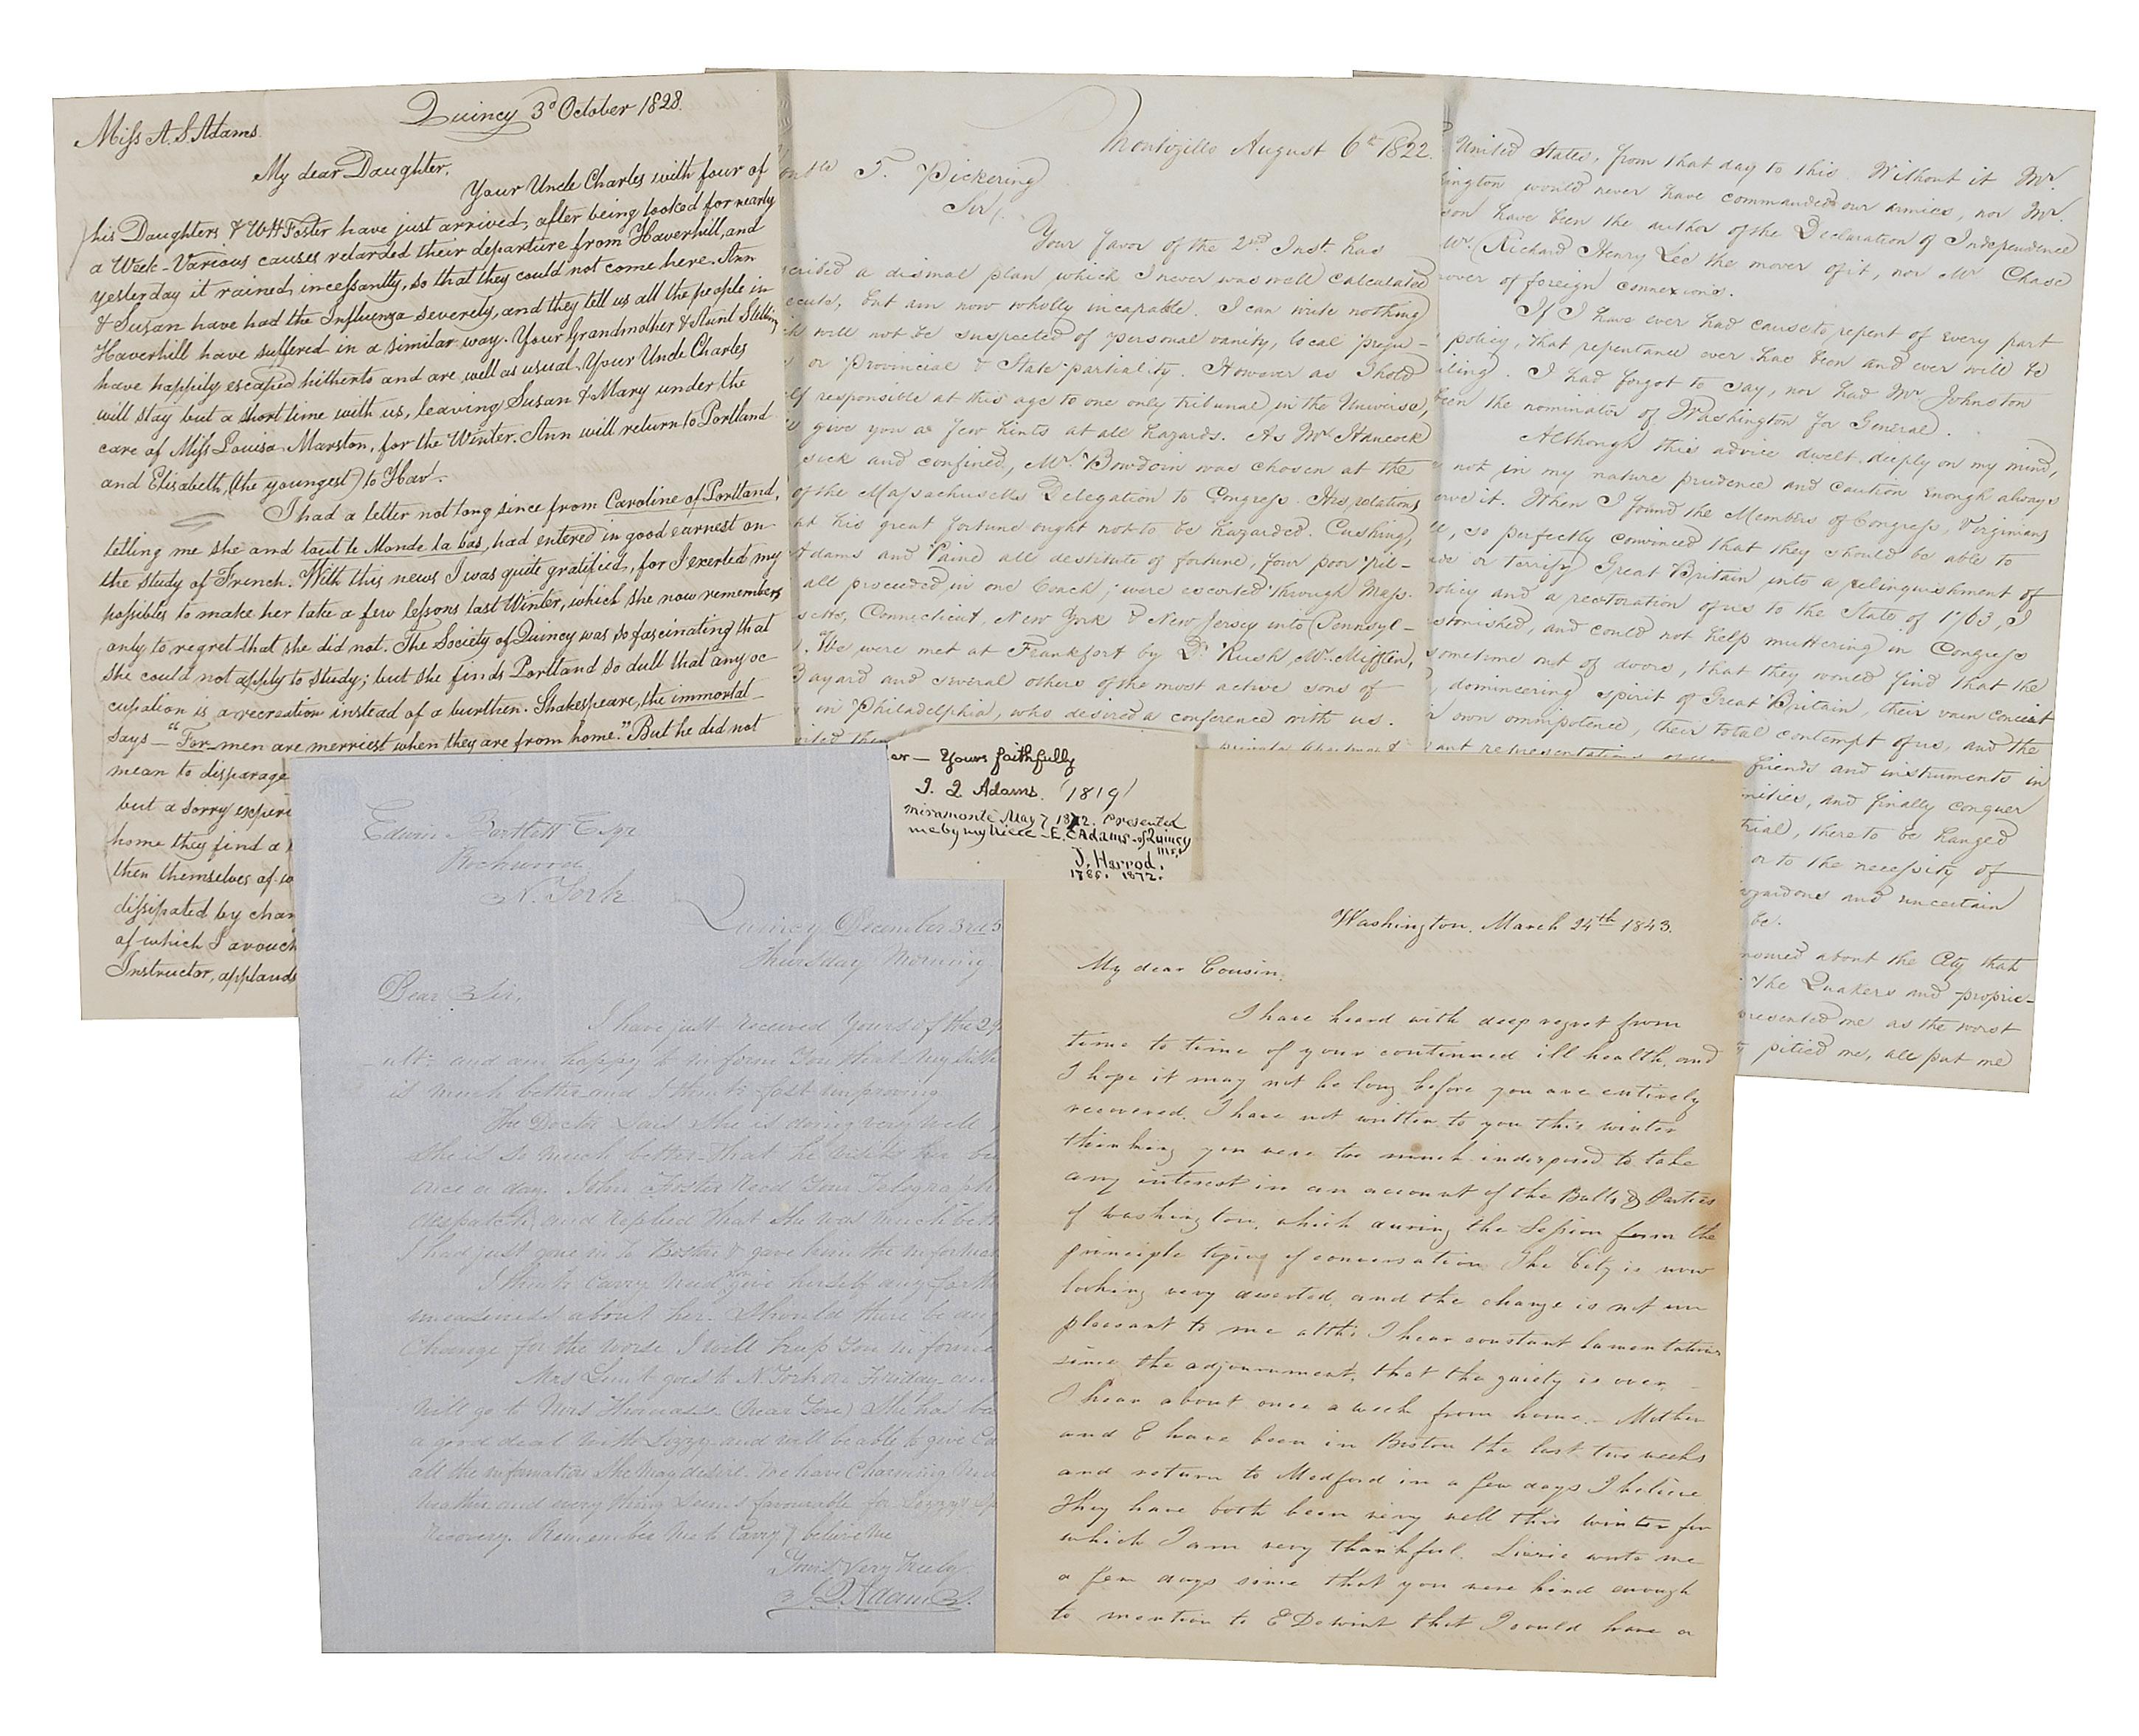 Quincy 3d October 1828.
Miss A. S. Adams.
My dear Daughter,
Your Uncle Charles with four of
his Daughters & WH Foster have just arrived, after being looked for nearly
a Week - Various causes retarded their departure from Haverhill, and
yesterday it rained incessantly, so that they could not come here. Ann
& Susan have had the Influenza severely, and they tell us all the people in
Haverhill have suffered in a similar way. Your Grandmother & Aunt
have happily escaped hitherto and are well as usual. Your Uncle Charles
will stay but a short time with us, leaving Susan & Mary under the
care of Miss Louisa Marston, for the Winter. Ann will return to Portland
and Elisabeth, (the youngest) to Havl.
I had a letter not long since from Caroline of Portland,
telling me she and tout le Monde la bas, had entered in good earnest on
the study of French. With this news I was quite gratified, for I exerted my
possibles to make her take a few lessons last Winter, which she now remembers
only to regret that she did not. The Society of Quincy was so fascinating that
she could not apply to study; but she finds Portland so dull that any oc
cupation is a recreation instead of a burthen. Shakespeare, the immortal
says - "For men are merriest when they are from home." But he did not
mean to disparage
but a sorry experi
home they find a
then themselves of
dissipated by chan
of which I avouch
Instructor, applauds
Montezillo August 6th 1822.
T. Pickering
Sir/.
Your favor of the 2nd Inst. has
cribed a dismal plan, which I never was well calculated
ecute, but am now wholly incapable. I can write nothing
will not be suspected of personal vanity, local preju-
or Provincial & State partiality. However as I hold
responsible at this age to one only tribunal in the Universe,
give you a few hints at all hazards. As Mr. Hancock
sick and confined, Mr. Bowdoin was chosen at the
of the Massachusetts Delegation to Congress. His relations
his great fortune ought not to be hazarded. Cushing,
Adams and Paine all destitute of fortune, four poor Pil-
all proceeded in one Coach; were escorted through Mass-
setts, Connecticut, New York & New Jersey into Pennsyl-
We were met at Frankfort by Dr. Rush, Mr. Mifflin,
Bayard and several others of the most active sons of
in Philadelphia, who desired a conference with us.
United States, from that day to this. Without it Mr.
ington would never have commanded our armies, nor Mr.
son have been the author of the Declaration of Independence
Mr. Richard Henry Lee the mover of it, nor Mr Chase
over of foreign connexions.
If I have ever had cause to repent of every part
policy, that repentance ever has been and ever will be
iling. I had forgot to say, nor had Mr Johnston
been the nominator of Washington for General.
Although this advice dwelt deeply on my mind,
not in my nature prudence and caution enough always
erve it. When I found the Members of Congress, Virginians
so perfectly convinced that they should be able to
or terrify Great Britain into a relinquishment of
policy and a restoration of us to the State of 1763, I
stonished, and could not help muttering in Congress
sometime out of doors, that they would find that the
domineering spirit of Great Britain, their vain conceit
own omnipotence, their total contempt of us, and the
friends and instruments in
and finally conquer
trial, there to be hanged
or to the necessity of
and uncertain
be.
about the City that
the Quakers and proprie-
resented me as the worst
pitied me, all put me
er — Yours faithfully
J. Q Adams. (1819)
miramonte May 7 1872. Presented
me by my Niece - E. C Adams - of Quincy
ms.
J. Harrod.
1786. 1872.
Edwin Bartlett Esqr
Rockwood
N. York
Quincy December 3rd 5
Thursday Morning
Dear Sir,
I have just received yours of the 29
ult: and am happy to inform You that my Siste
is much better and I think fast improving
The Doctor Says she is doing very well
She is so much better that he visits her bu
once a day. John Foster Recd Your Telegraph
dispatch, and replied that she was much bett
I had just gone in to Boston & gave him the informat
I think Carry need not give herself any farth
uneasiness about her. Should there be any
Change for the worse I will keep You informe
Mrs Lunt goes to N York on Friday and
will go to Mrs (Near You) She has be
a good deal with Lizzy and will be able to give Ca
all the information She may desire. We have Charming
weather and every thing Seems favourable for Lizzys
recovery. Remember me to Carry & believe me
Yours Very Truly
J. Q. Adams.
Washington, March 24th 1843.
My dear Cousin,
I have heard with deep regret from
time to time of your continued ill health, and
I hope it may not be long before you are entirely
recovered. I have not written to you this winter
thinking you were too much indisposed to take
any interest in an account of the Balls & Parties
of Washington, which during the Session form the
principle topics of conversation. The City is now
looking very deserted, and the change is not un
pleasant to me altho I hear constant lamentations
since the adjournment, that the gaiety is over.
I hear about once a week from home. - Mother
and E have been in Boston the last two weeks
and return to Medford in a few days I believe
They have both been very well this winter for
which I am very thankful. Lizzie wrote me
a few days since that you were kind enough
to mention to E Dewint that I could have a